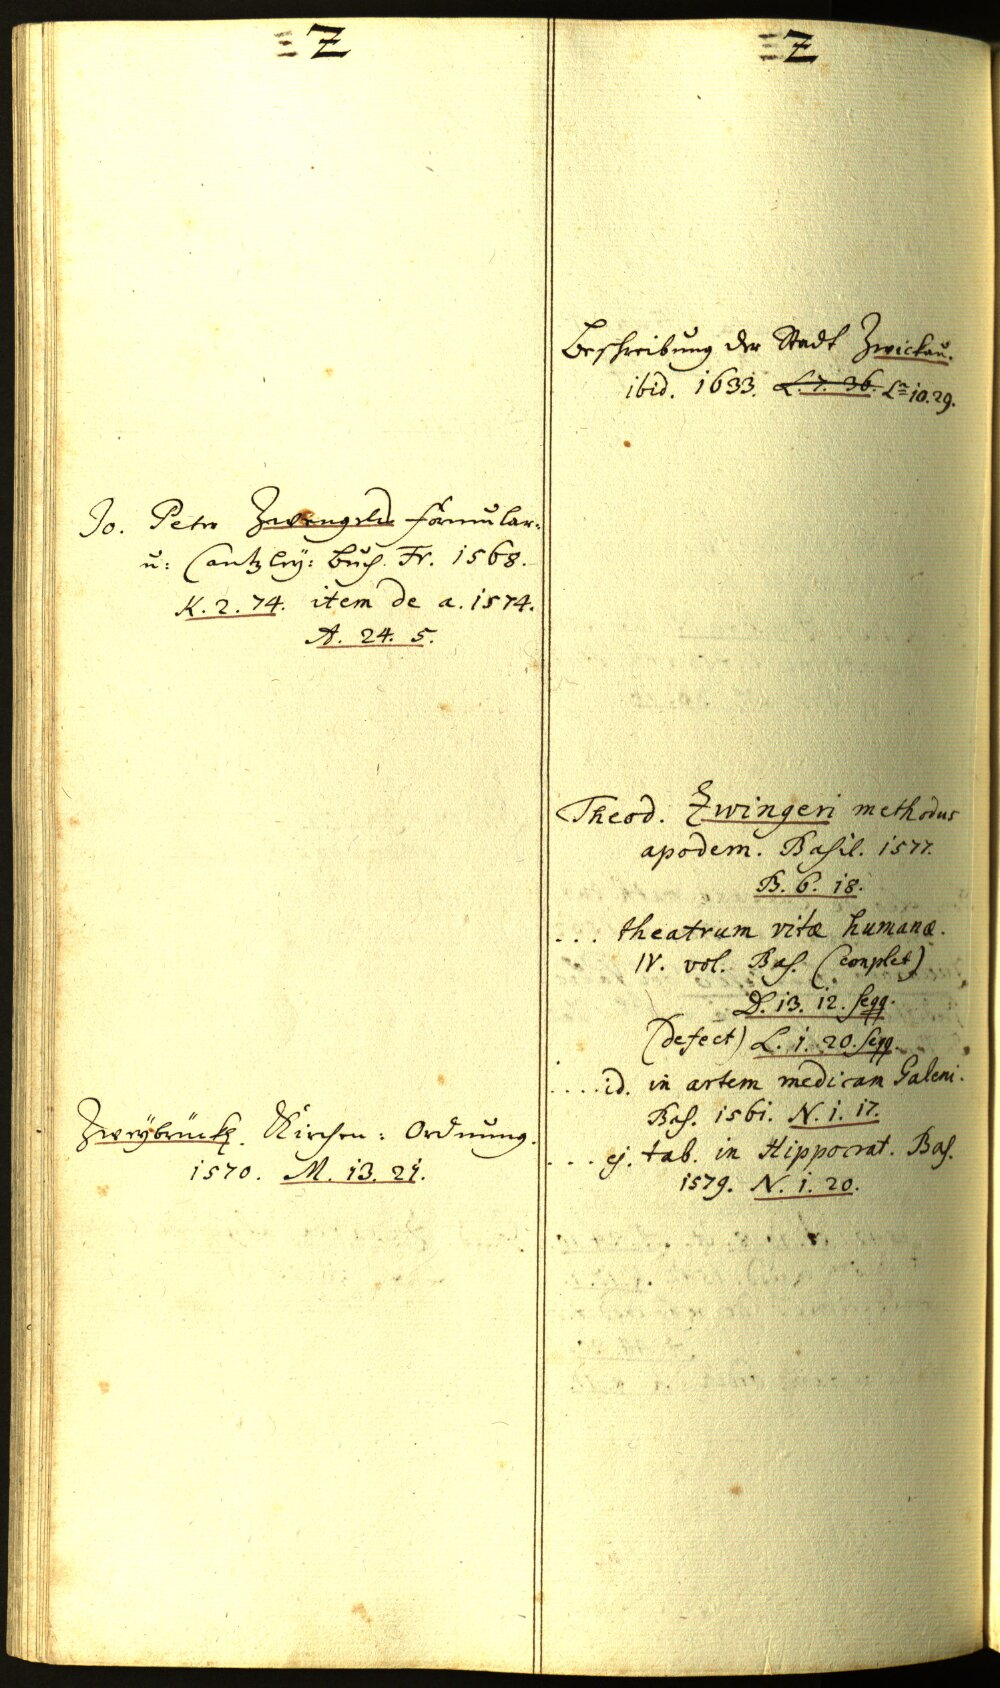 Z
Jo. Petr Zwengels formular-
u: Cantzley: Buch. Fr. 1568.
K. 2. 74. item de a. 1574.
A. 24. 5.
Zweÿbrück. Kirchen: Ordnung.
1570. M. 13. 21.
Z
Beschreibung der Stadt Zwickau.
ibid. 1633. L. 7. 36. L. 10. 29.
Theod. Zwingeri methodus
apodem. Basil. 1577.
B. 6. 18.
... theatrum vitæ humanæ.
IV. vol. Bas. (complet)
D. 13. 12. seqq.
(defect) L. 1. 20. seqq.
.... id. in artem medicam Galeni.
Bas. 1561. N. 1. 17.
... ej. tab. in Hippocrat. Bas.
1579. N. 1. 20.